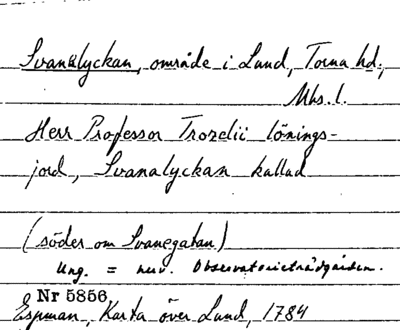 Svanelyckan, område i Lund, Torna hd.,
Mhs. l.
Herr Professor Trozelii lönings-
jord, Svanalyckan kallad
(söder om Svanegatan)
Ung. = nuv. Observatorieträdgården.
Nr 5856
Espman, Karta över Lund, 1784